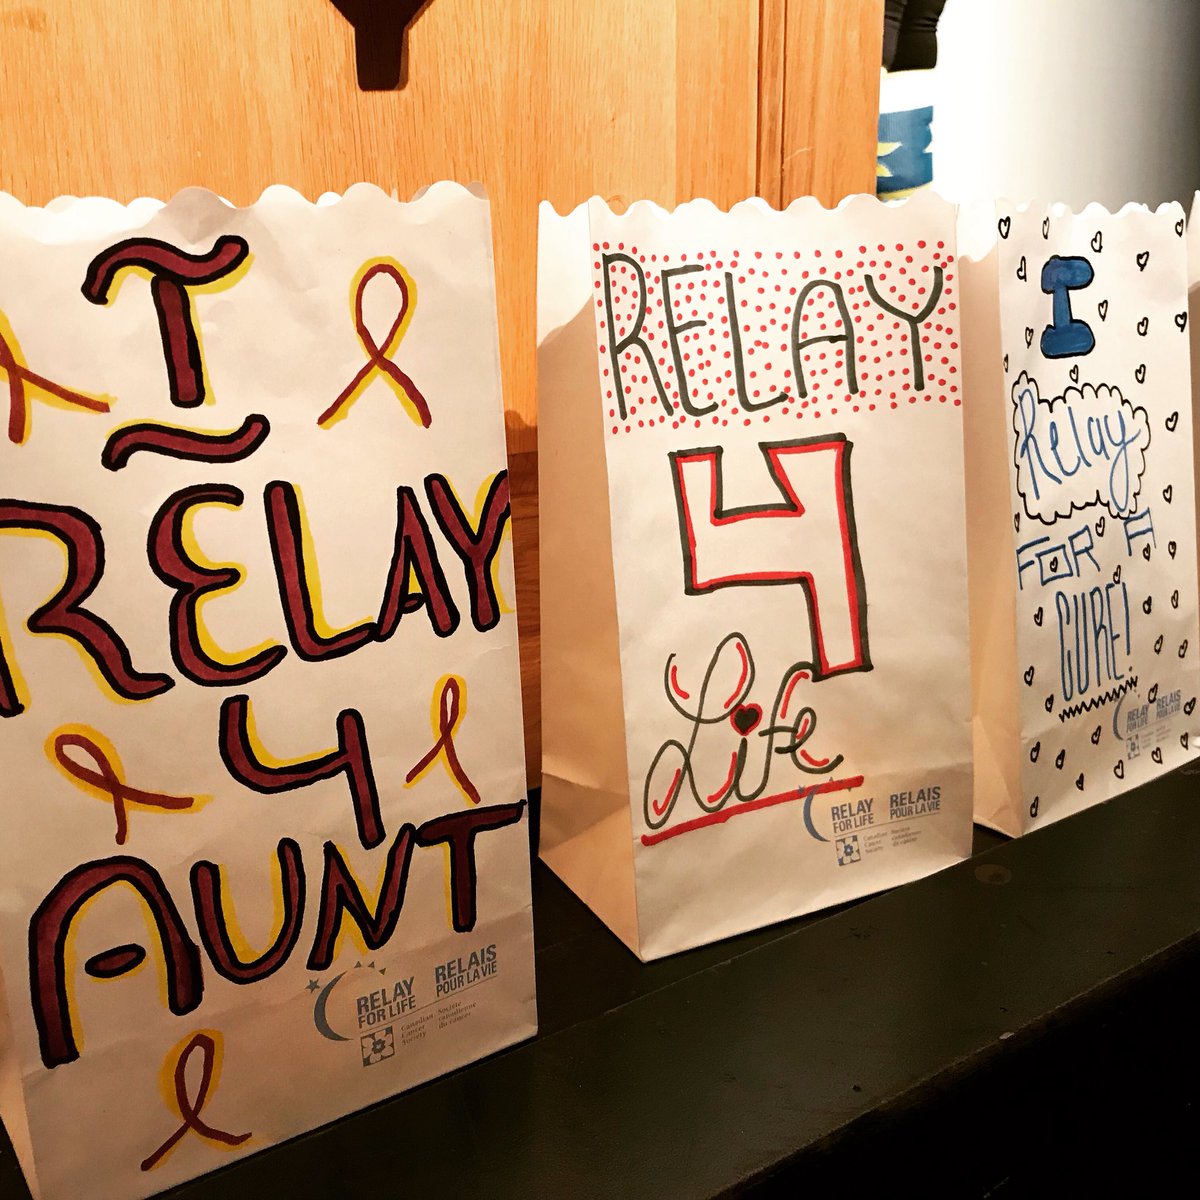 I
RELAY
4
AUNT
RELAY RELAIS
FOR LIFE POUR LA VIE
Canadian Société
Cancer canadienne
Society du cancer
RELAY
4
Life
RELAY RELAIS
FOR LIFE POUR LA VIE
Canadian Société
Cancer canadienne
Society du cancer
I
Relay
FOR A
CURE!
RELAY RELAIS
FOR LIFE POUR LA VIE